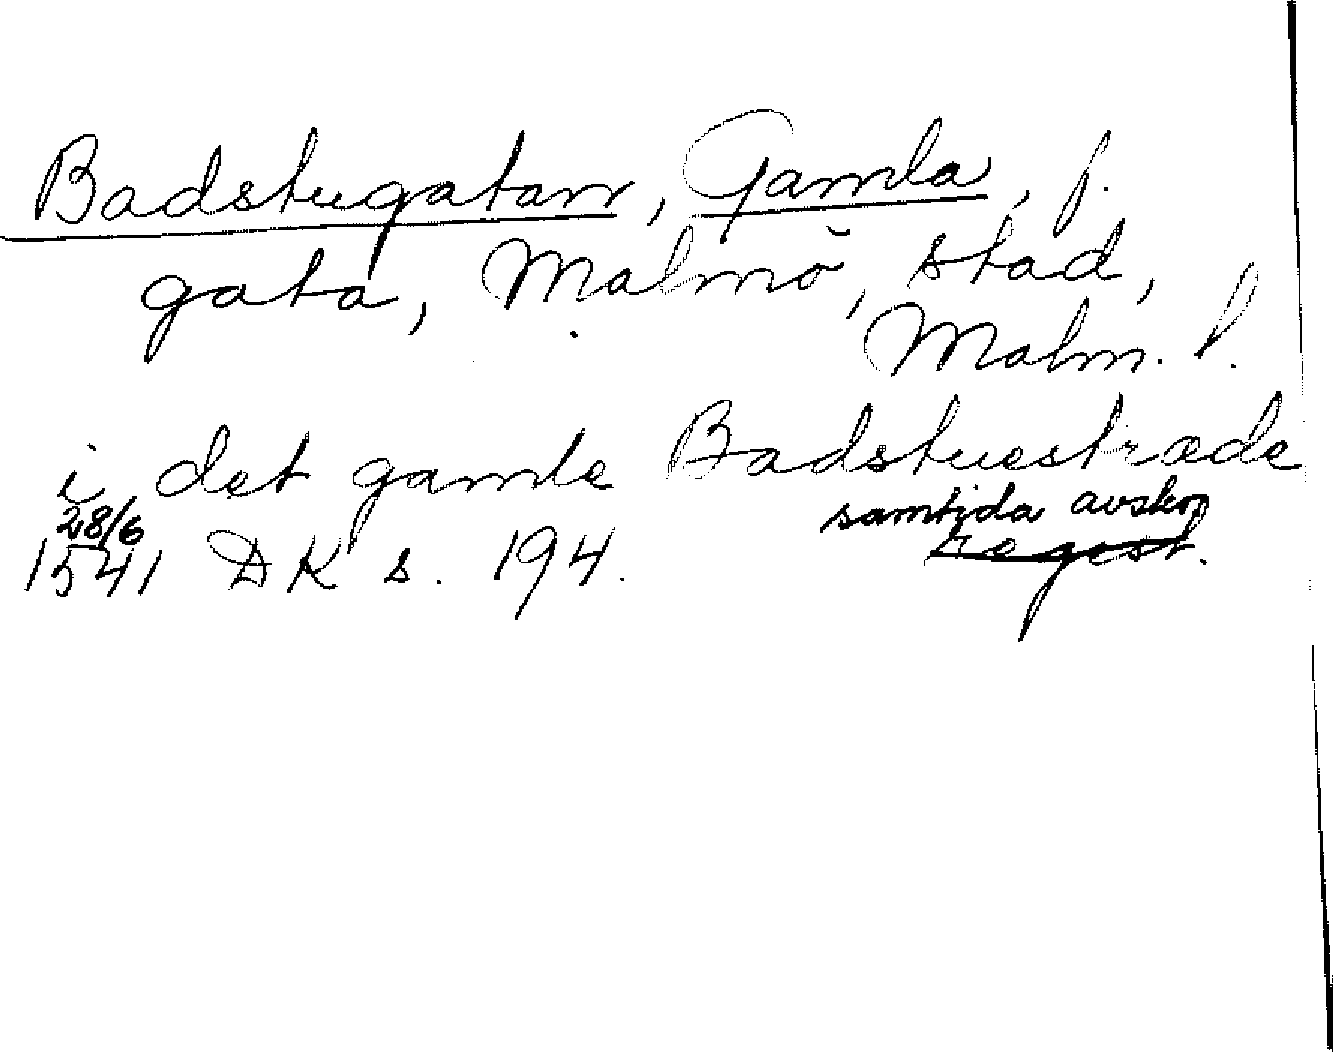 Badstugatan, Gamla, f.
gata, Malmö, stad,
Malm. l.
i det gamle Badstuestræde
28/6 samtida avskr
1541 DK s. 194. regest.